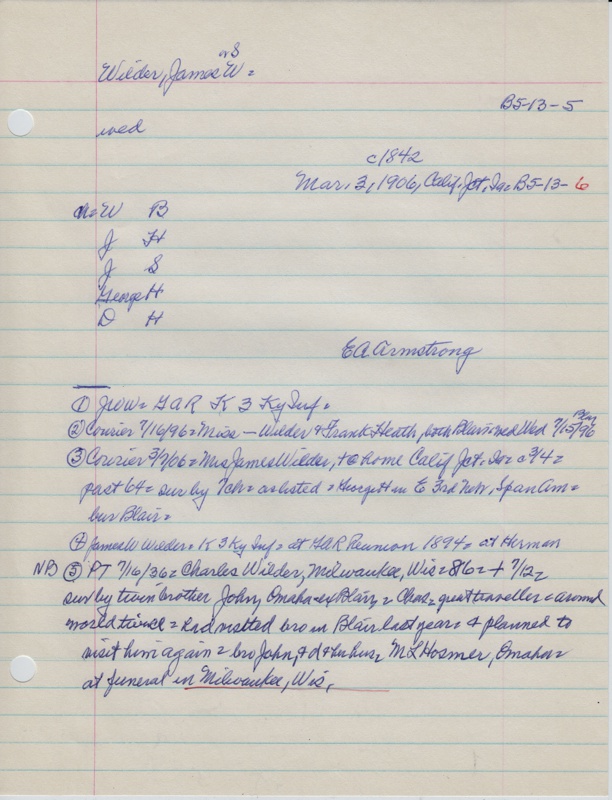 or S
Wilder, James W =
B5-13-5
wed
c1842
Mar. 3, 1906, Calif. Jct, Ia = B5-13-6
ch = W B
J H
J S
George H
D H
E A Armstrong
① JWW = GAR K 3 Ky Inf =
② Courier 7/16/96 = Miss — Wilder & Frank Heath, both Blair = wed Wed 7/15/96 Blair
③ Courier 3/7/06 = Mrs James Wilder, + @ home Calif Jct. Ia = c 3/4 =
past 64 = sur by 7ch = as listed = George H in E 3rd Neb, Span Am =
bur Blair =
④ James W Wilder = K 3 Ky Inf = at GAR Reunion 1894 = at Herman
NB ⑤ PT 7/16/36 = Charles Wilder, Milwaukee, Wis = 86 = + 7/12 =
sur by twin brother John, Omaha = ex Blair, = Chas = great traveller = around
world twice = had visited bro in Blair last year = & planned to
visit him again = bro John, & d & her hus, M L Hosmer, Omaha =
at funeral in Milwaukee, Wis,